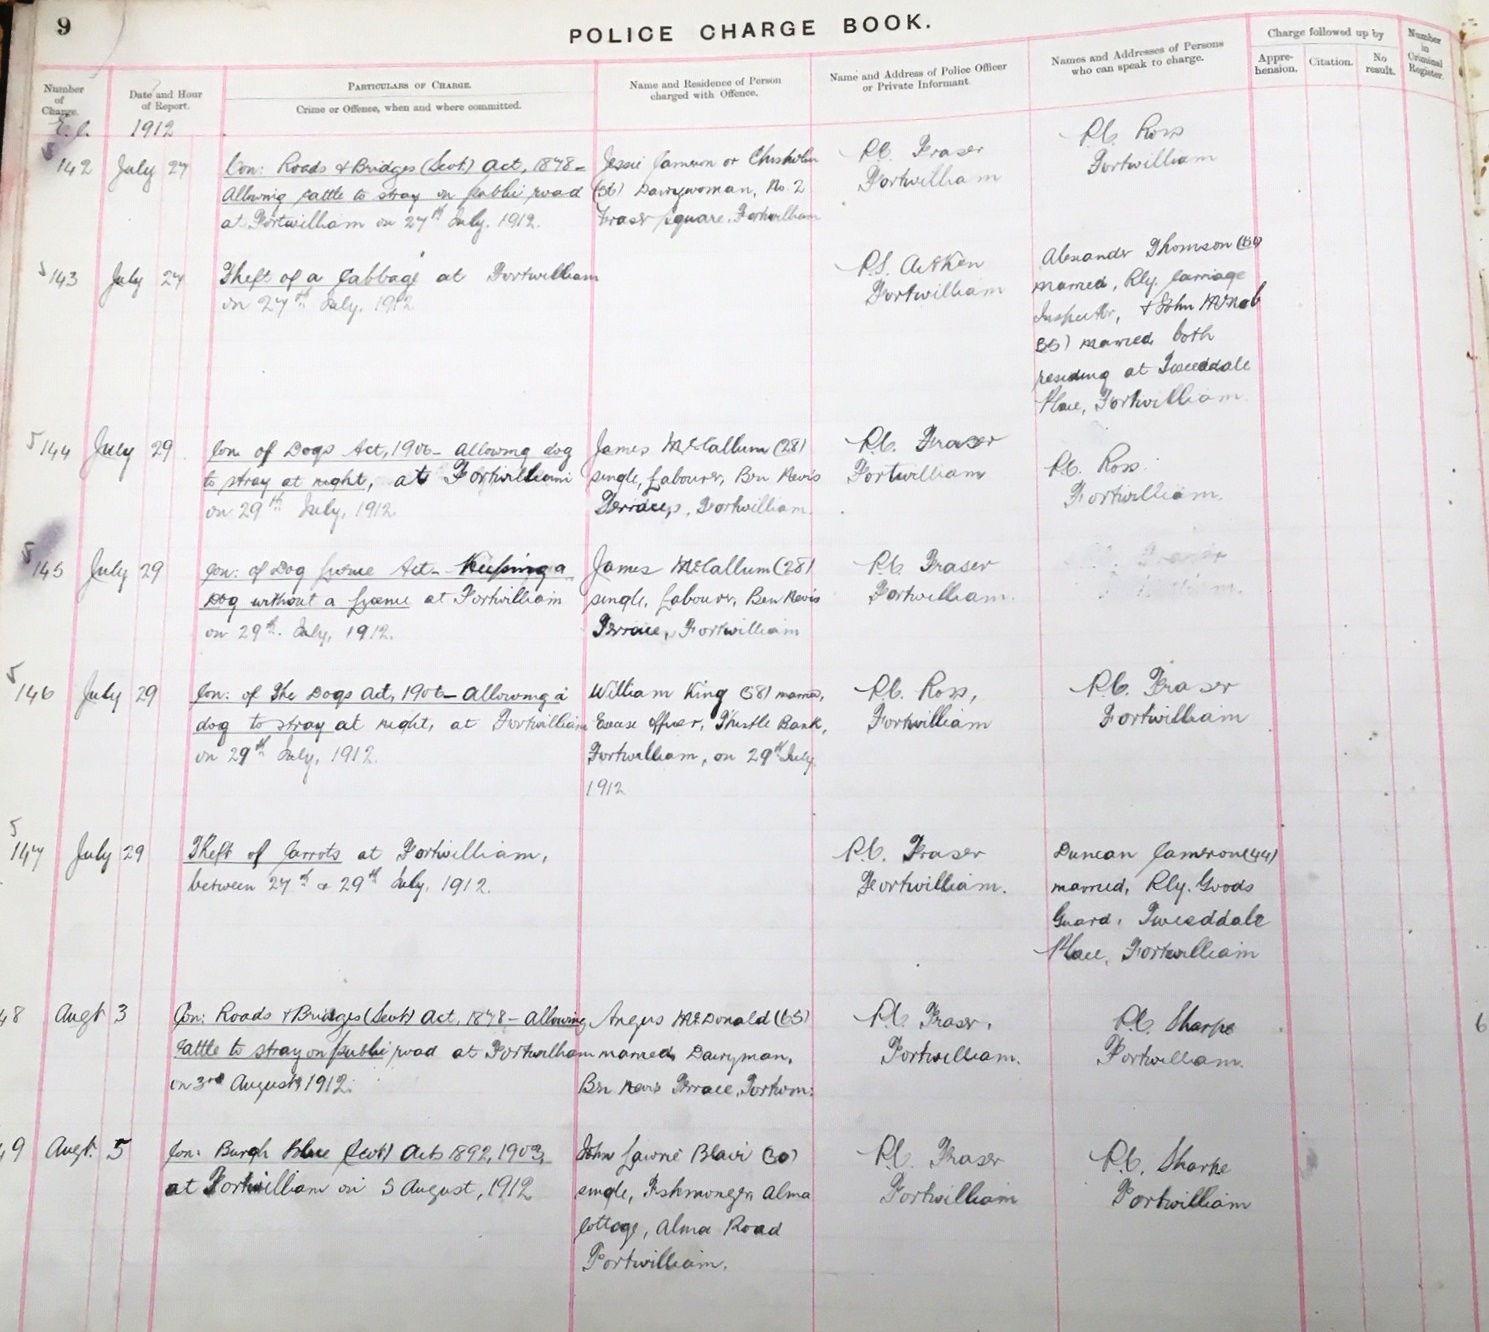 9
POLICE CHARGE BOOK.
Number of Charge.
Date and Hour of Report.
PARTICULARS OF CHARGE.
Crime or Offence, when and where committed.
Name and Residence of Person charged with Offence.
Name and Address of Police Officer or Private Informant.
Names and Addresses of Persons who can speak to charge.
Charge followed up by
Appre-hension.
Citation.
No result.
Number in Criminal Register.
1912
142 July 27
Con: Roads & Bridges (Scot) Act, 1878–
Allowing cattle to stray on public road
at Fortwilliam on 27th July, 1912.
Jessie Cameron or Chisholm
(36) Dairywoman, No. 2
Fraser Square, Fortwilliam
P.C. Fraser
Fortwilliam
P.C. Ross
Fortwilliam
143 July 27
Theft of a Cabbage at Fortwilliam
on 27th July, 1912
P.S. Aitken
Fortwilliam
Alexander Thomson
married, Rly. Carriage
Inspector, & John McNab
35) married, both
residing at Tweeddale
Place, Fortwilliam
5 144 July 29
Con: of Dogs Act, 1906– allowing dog
to stray at night, at Fortwilliam
on 29th July, 1912
James McCallum (28)
single, Labourer, Ben Nevis
Terrace, Fortwilliam.
P.C. Fraser
Fortwilliam
P.C. Ross.
Fortwilliam.
5 145 July 29
Con: of Dog License Act– Keeping a
Dog without a license at Fortwilliam
on 29th July, 1912.
James McCallum (28)
single, Labourer, Ben Nevis
Terrace, Fortwilliam
P.C. Fraser
Fortwilliam.
5 146 July 29
Con: of The Dogs Act, 1906– Allowing a
dog to stray at night, at Fortwilliam
on 29th July, 1912.
William King (58) married,
Excise Officer, Thistle Bank,
Fortwilliam, on 29th July
1912
P.C. Ross,
Fortwilliam
P.C. Fraser
Fortwilliam
5 147 July 29
Theft of Carrots at Fortwilliam,
between 27th & 29th July, 1912.
P.C. Fraser
Fortwilliam.
Duncan Cameron (44)
married, Rly. Goods
Guard, Tweeddale
Place, Fortwilliam
48 Augt 3
Con: Roads & Bridges (Scot) Act, 1878– allowing
cattle to stray on public road at Fortwilliam
on 3rd August 1912.
Angus McDonald (65)
married, Dairyman,
Ben Nevis Terrace, Fortwm:
P.C. Fraser,
Fortwilliam.
P.C. Sharpe
Fortwilliam.
6
9 Augt. 5
Con: Burgh Police (Scot) Acts 1892, 1903,
at Fortwilliam on 5 August, 1912
John Lawrie Blair (30)
single, Fishmonger, Alma
Cottage, Alma Road
Fortwilliam.
P.C. Fraser
Fortwilliam
P.C. Sharpe
Fortwilliam